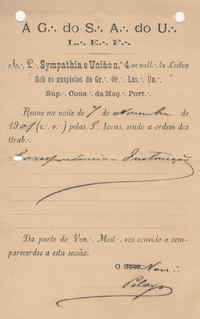 Á G∴ do S∴ A∴ do U∴
L∴ E∴ F∴
Sympathia e União n.º 4 ao vall∴ de Lisboa
Sob os auspicios do Gr∴ Or∴ Lus∴ Un∴
Sup∴ Cons∴ da Maç∴ Port∴
Reune na noite de 7 de Novembro de
190 (e∴ v∴) pelas horas, sendo a ordem dos
trab∴
Correspondencia – Instrucção
Da parte do Ven∴ Mest∴ vos convido a com-
parecerdes a esta sessão.
O Ven∴
Pelayo